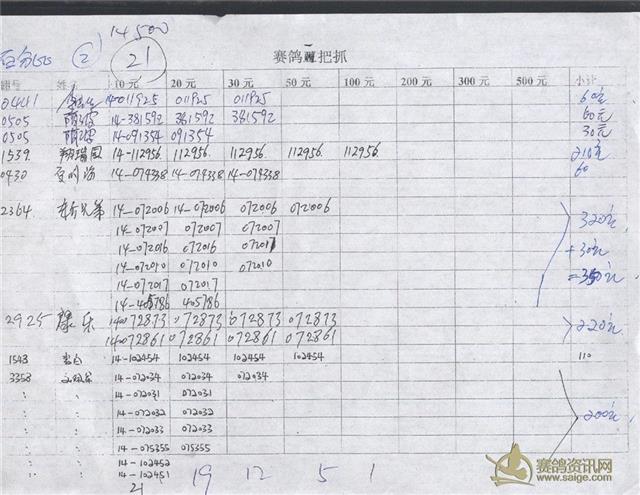 14500
百分GG ② 21 赛鸽 把抓
编号 姓名 10 元 20 元 30 元 50 元 100 元 200 元 300 元 500 元 小计
0441 14-011925 011925 011925 60元
0505 14-381592 381592 381592 60元
0505 14-091354 091354 30元
1539 翔瑞 14-112956. 112956. 112956. 112956. 112956. 210元
0430 14-074338 14-074338 14-074338 60
2364 兄弟 14-072006 14-072006 072006 072006 320元
14-072007 072007 072007
14-072016 072016 +30元
14-072010 072010 072010
14-072017 072017 =350元
14-405786 405786
2925 康乐 14-072873 072873 072873 072873 220元
14-072861 072861 072861 072861
1543 14-102454 102454 102454 102454 110
3358 14-072034 072034 072034
14-072031 072031
14-072032 072032 200元
14-072033 072033
14-075355 075355
14-102452
14-102451
21 19 12 5 1
赛鸽资讯网
www.saige.com